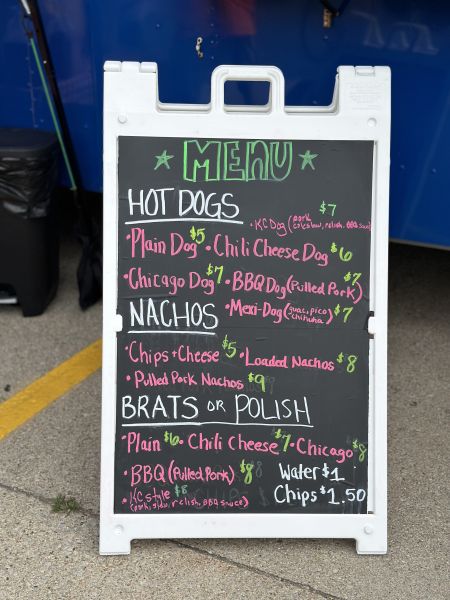 MENU
HOT DOGS
• KC Dog (pork, coleslaw, relish, BBQ sauce) $7
• Plain Dog $5 • Chili Cheese Dog $6
• Chicago Dog $7 • BBQ Dog (Pulled Pork) $7
NACHOS • Mexi-Dog (guac, pico, chihuha) $7
• Chips + Cheese $5 • Loaded Nachos $8
• Pulled Pork Nachos $9
BRATS OR POLISH
• Plain $6 • Chili Cheese $7 • Chicago $8
• BBQ (Pulled Pork) $8 Water $1
• KC Style $8 Chips $1.50
(pork, slaw, relish, BBQ sauce)